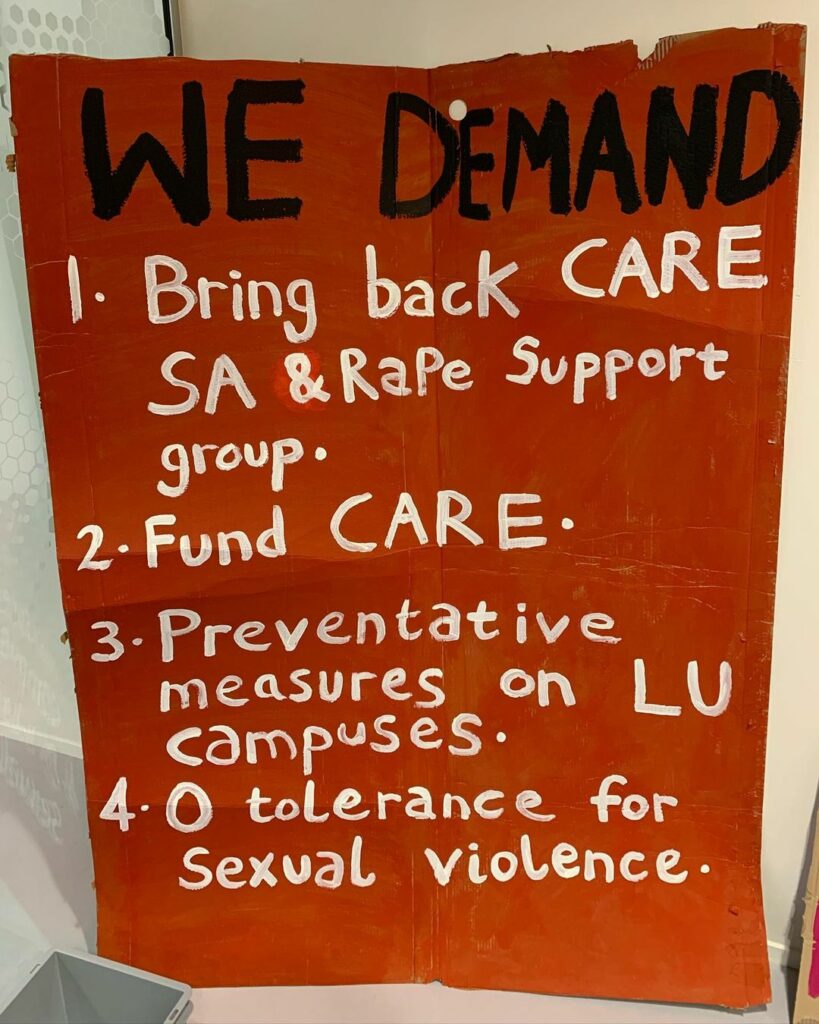 WE DEMAND
1. Bring back CARE
SA & RaPe Support
group.
2. Fund CARE.
3. Preventative
measures on LU
campuses.
4. 0 tolerance for
sexual violence.